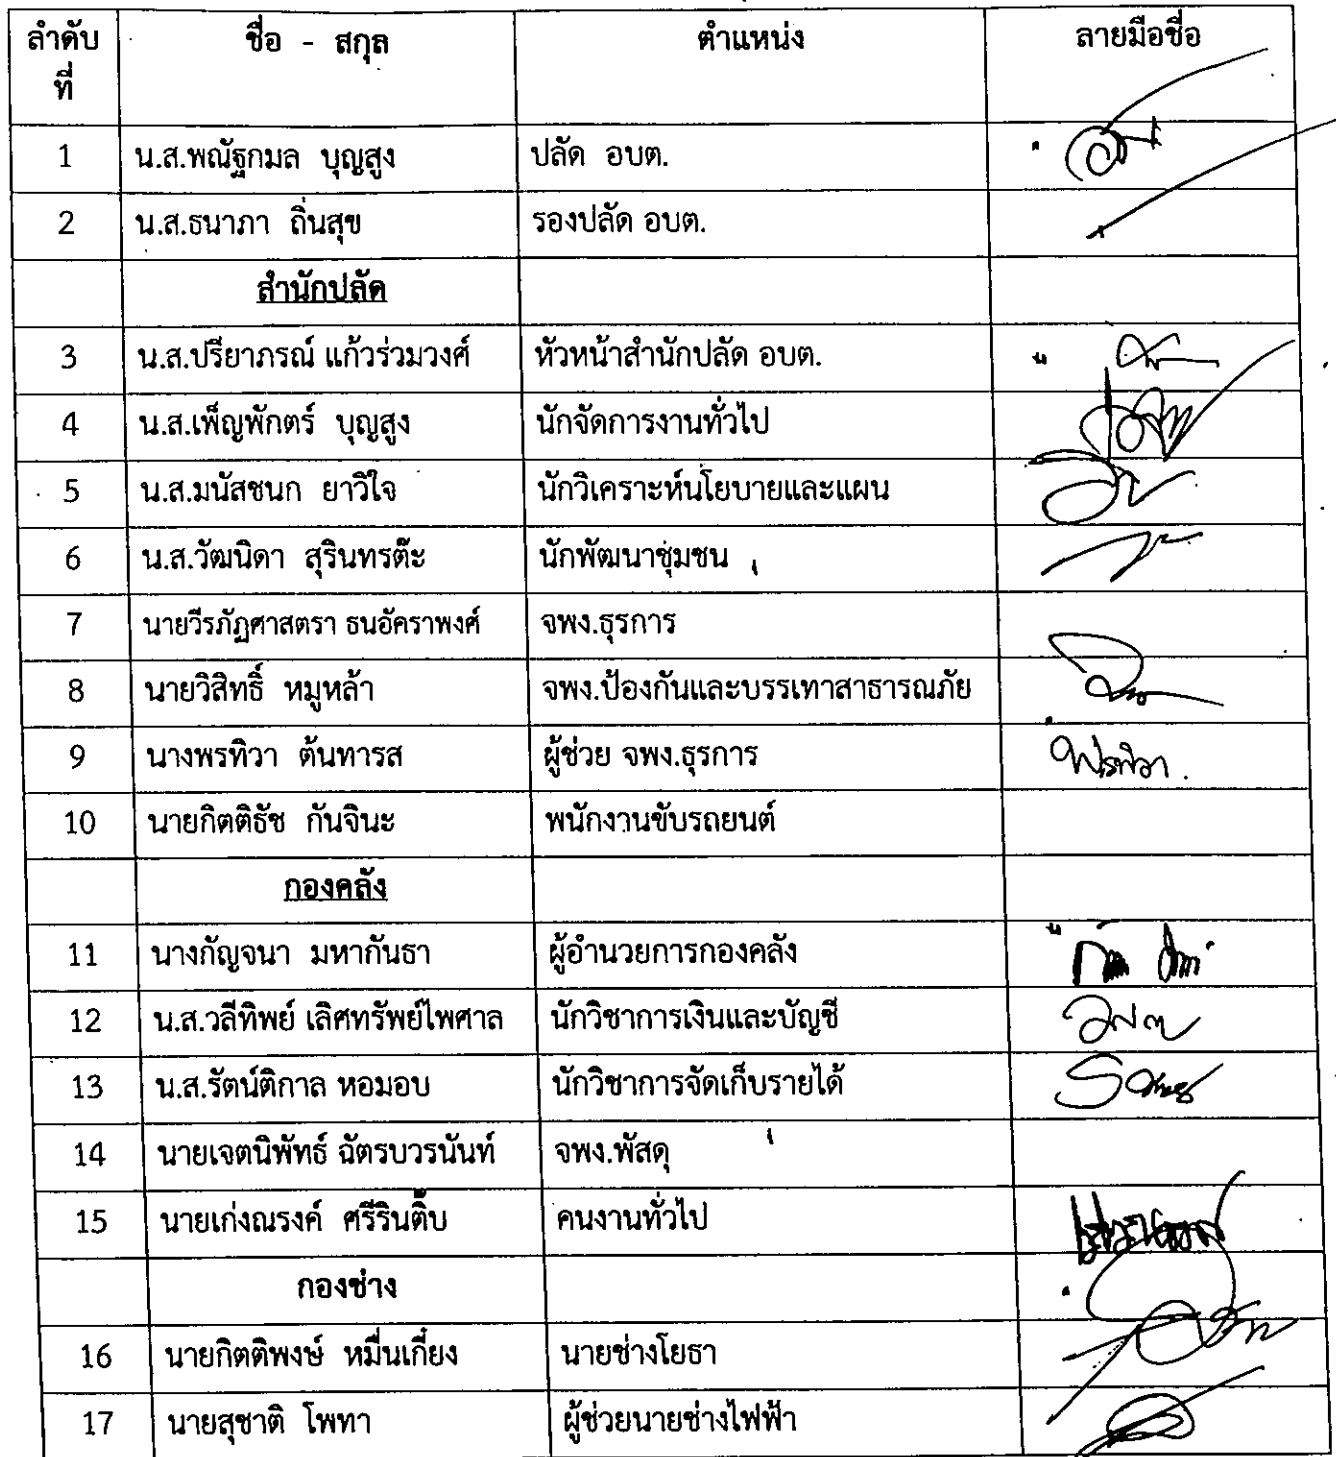 ลำดับ ชื่อ - สกุล ตำแหน่ง ลายมือชื่อ
ที่
1 น.ส.พณัฐกมล บุญสูง ปลัด อบต.
2 น.ส.ธนาภา ถิ่นสุข รองปลัด อบต.
สำนักปลัด
3 น.ส.ปรียาภรณ์ แก้วร่วมวงศ์ หัวหน้าสำนักปลัด อบต.
4 น.ส.เพ็ญพักตร์ บุญสูง นักจัดการงานทั่วไป
5 น.ส.มนัสชนก ยาวิใจ นักวิเคราะห์นโยบายและแผน
6 น.ส.วัฒนิดา สุรินทรต๊ะ นักพัฒนาชุมชน
7 นายวีรภัฏศาสตรา ธนอัคราพงศ์ จพง.ธุรการ
8 นายวิสิทธิ์ หมูหล้า จพง.ป้องกันและบรรเทาสาธารณภัย
9 นางพรทิวา ต้นทารส ผู้ช่วย จพง.ธุรการ พรทิวา
10 นายกิตติธัช กันจินะ พนักงานขับรถยนต์
กองคลัง
11 นางกัญจนา มหากันธา ผู้อำนวยการกองคลัง
12 น.ส.วลีทิพย์ เลิศทรัพย์ไพศาล นักวิชาการเงินและบัญชี
13 น.ส.รัตน์ติกาล หอมอบ นักวิชาการจัดเก็บรายได้
14 นายเจตนิพัทธ์ ฉัตรบวรนันท์ จพง.พัสดุ
15 นายเก่งณรงค์ ศรีรินติ๊บ คนงานทั่วไป
กองช่าง
16 นายกิตติพงษ์ หมื่นเกี๋ยง นายช่างโยธา
17 นายสุชาติ โพทา ผู้ช่วยนายช่างไฟฟ้า